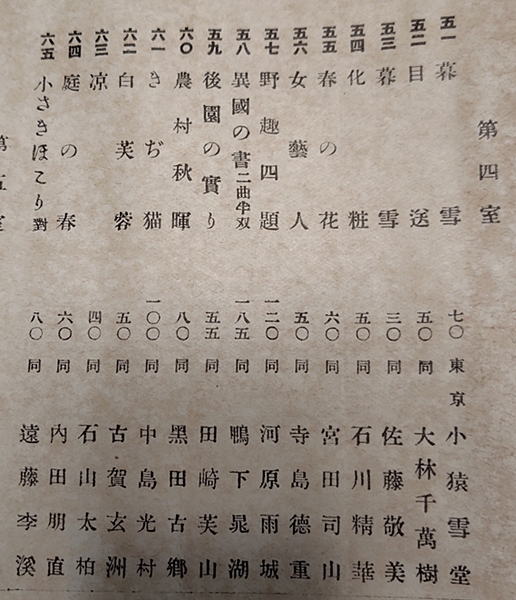 第四室
五一 暮雪 七〇 東京 小猿雪堂
五二 目送 五〇 同 大林千萬樹
五三 暮雪 三〇 同 佐藤敬美
五四 化粧 五〇 同 石川精華
五五 春の花 六〇 同 宮田司山
五六 女藝人 五〇 同 寺島德重
五七 野趣四題 一二〇 同 河原雨城
五八 異國の書二曲半双 一八五 同 鴨下晁湖
五九 後園の實り 五五 同 田崎芙山
六〇 農村秋暉 八〇 同 黑田古鄕
六一 きぢ猫 一〇〇 同 中島光村
六二 白芙蓉 五〇 同 古賀玄洲
六三 凉 四〇 同 石山太柏
六四 庭の春 六〇 同 內田朋直
六五 小さきほこり對 八〇 同 遠藤李溪